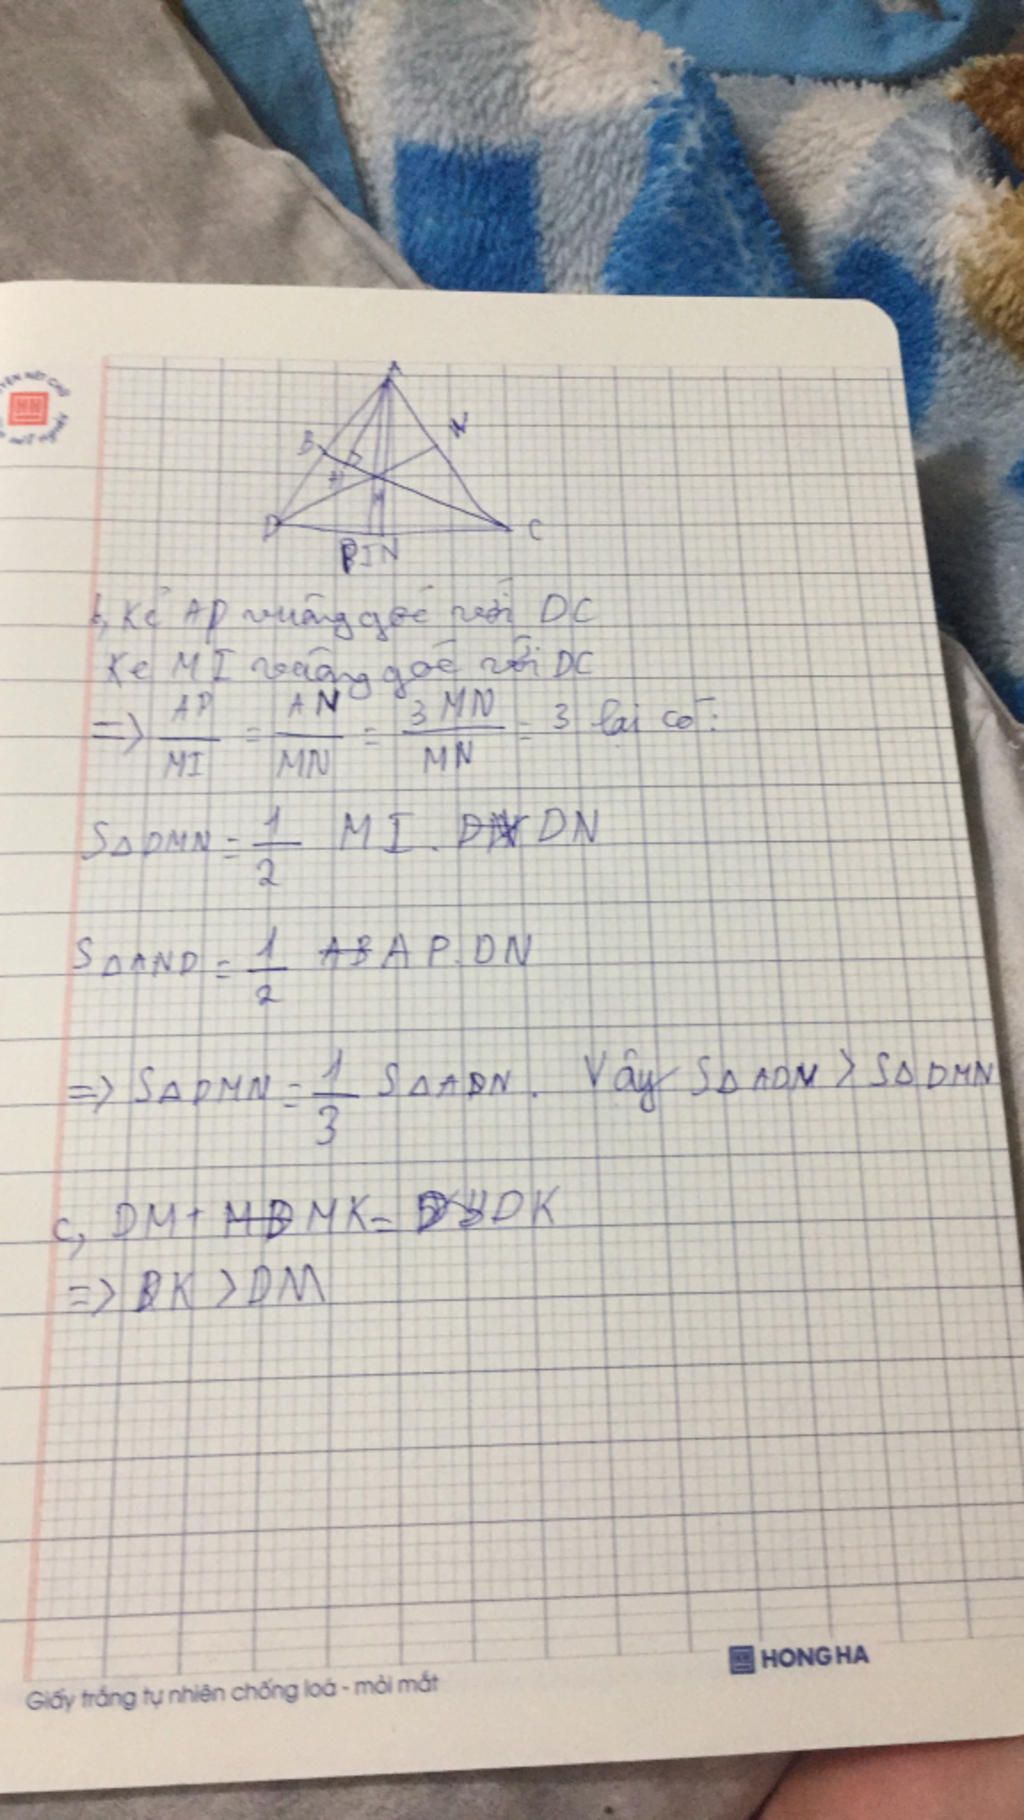 A
B
K
H
M
D
C
P I N
b, Kẻ AP vuông góc với DC
Kẻ MI vuông góc với DC
=> AP/MI = AN/MN = 3MN/MN = 3 lại có:
S△DMN = 1/2 MI. DN
S△AND = 1/2 AP.DN
=> S△DMN = 1/3 S△ADN. Vậy S△ADN > S△DMN
c, DM + MK = DK
=> DK > DM
HONG HA
Giấy trắng tự nhiên chống loá - mỏi mắt